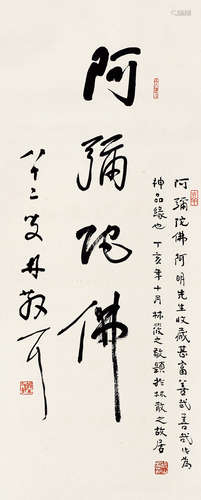 阿弥陀佛
八十二叟林散耳
阿彌陀佛阿明先生收藏甚富善哉善哉此為
神品緣也丁亥年十月林筱之敬題於林散之故居